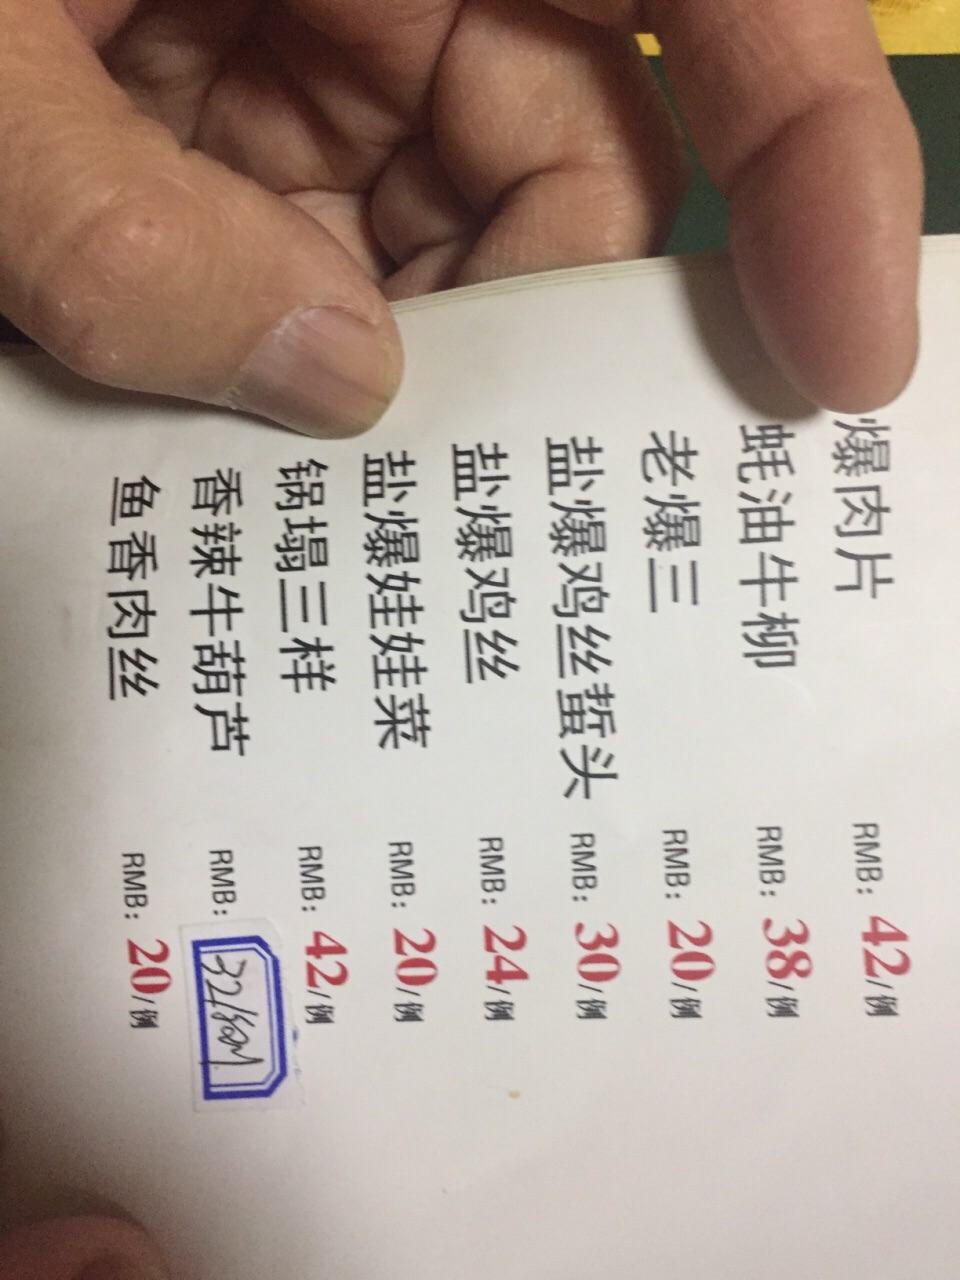 爆肉片 RMB: 42/例
蚝油牛柳 RMB: 38/例
老爆三 RMB: 20/例
盐爆鸡丝蜇头 RMB: 30/例
盐爆鸡丝 RMB: 24/例
盐爆娃娃菜 RMB: 20/例
锅塌三样 RMB: 42/例
香辣牛葫芦 RMB: 32/
鱼香肉丝 RMB: 20/例